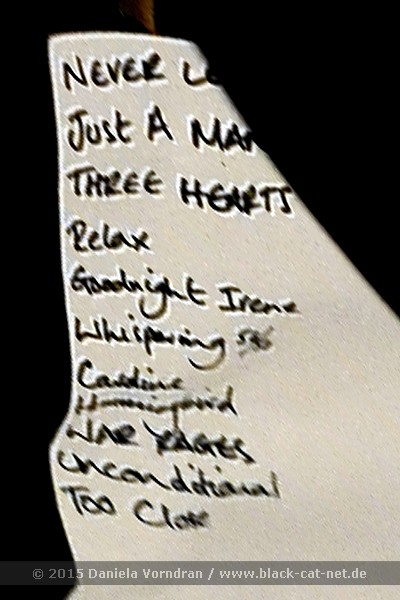 NEVER
JUST A MAN
THREE HEARTS
Relax
Goodnight Irene
Whispering
Caroline
Hummingbird
WAR PAGES
Unconditional
TOO Close
© 2015 Daniela Vorndran / www.black-cat-net.de